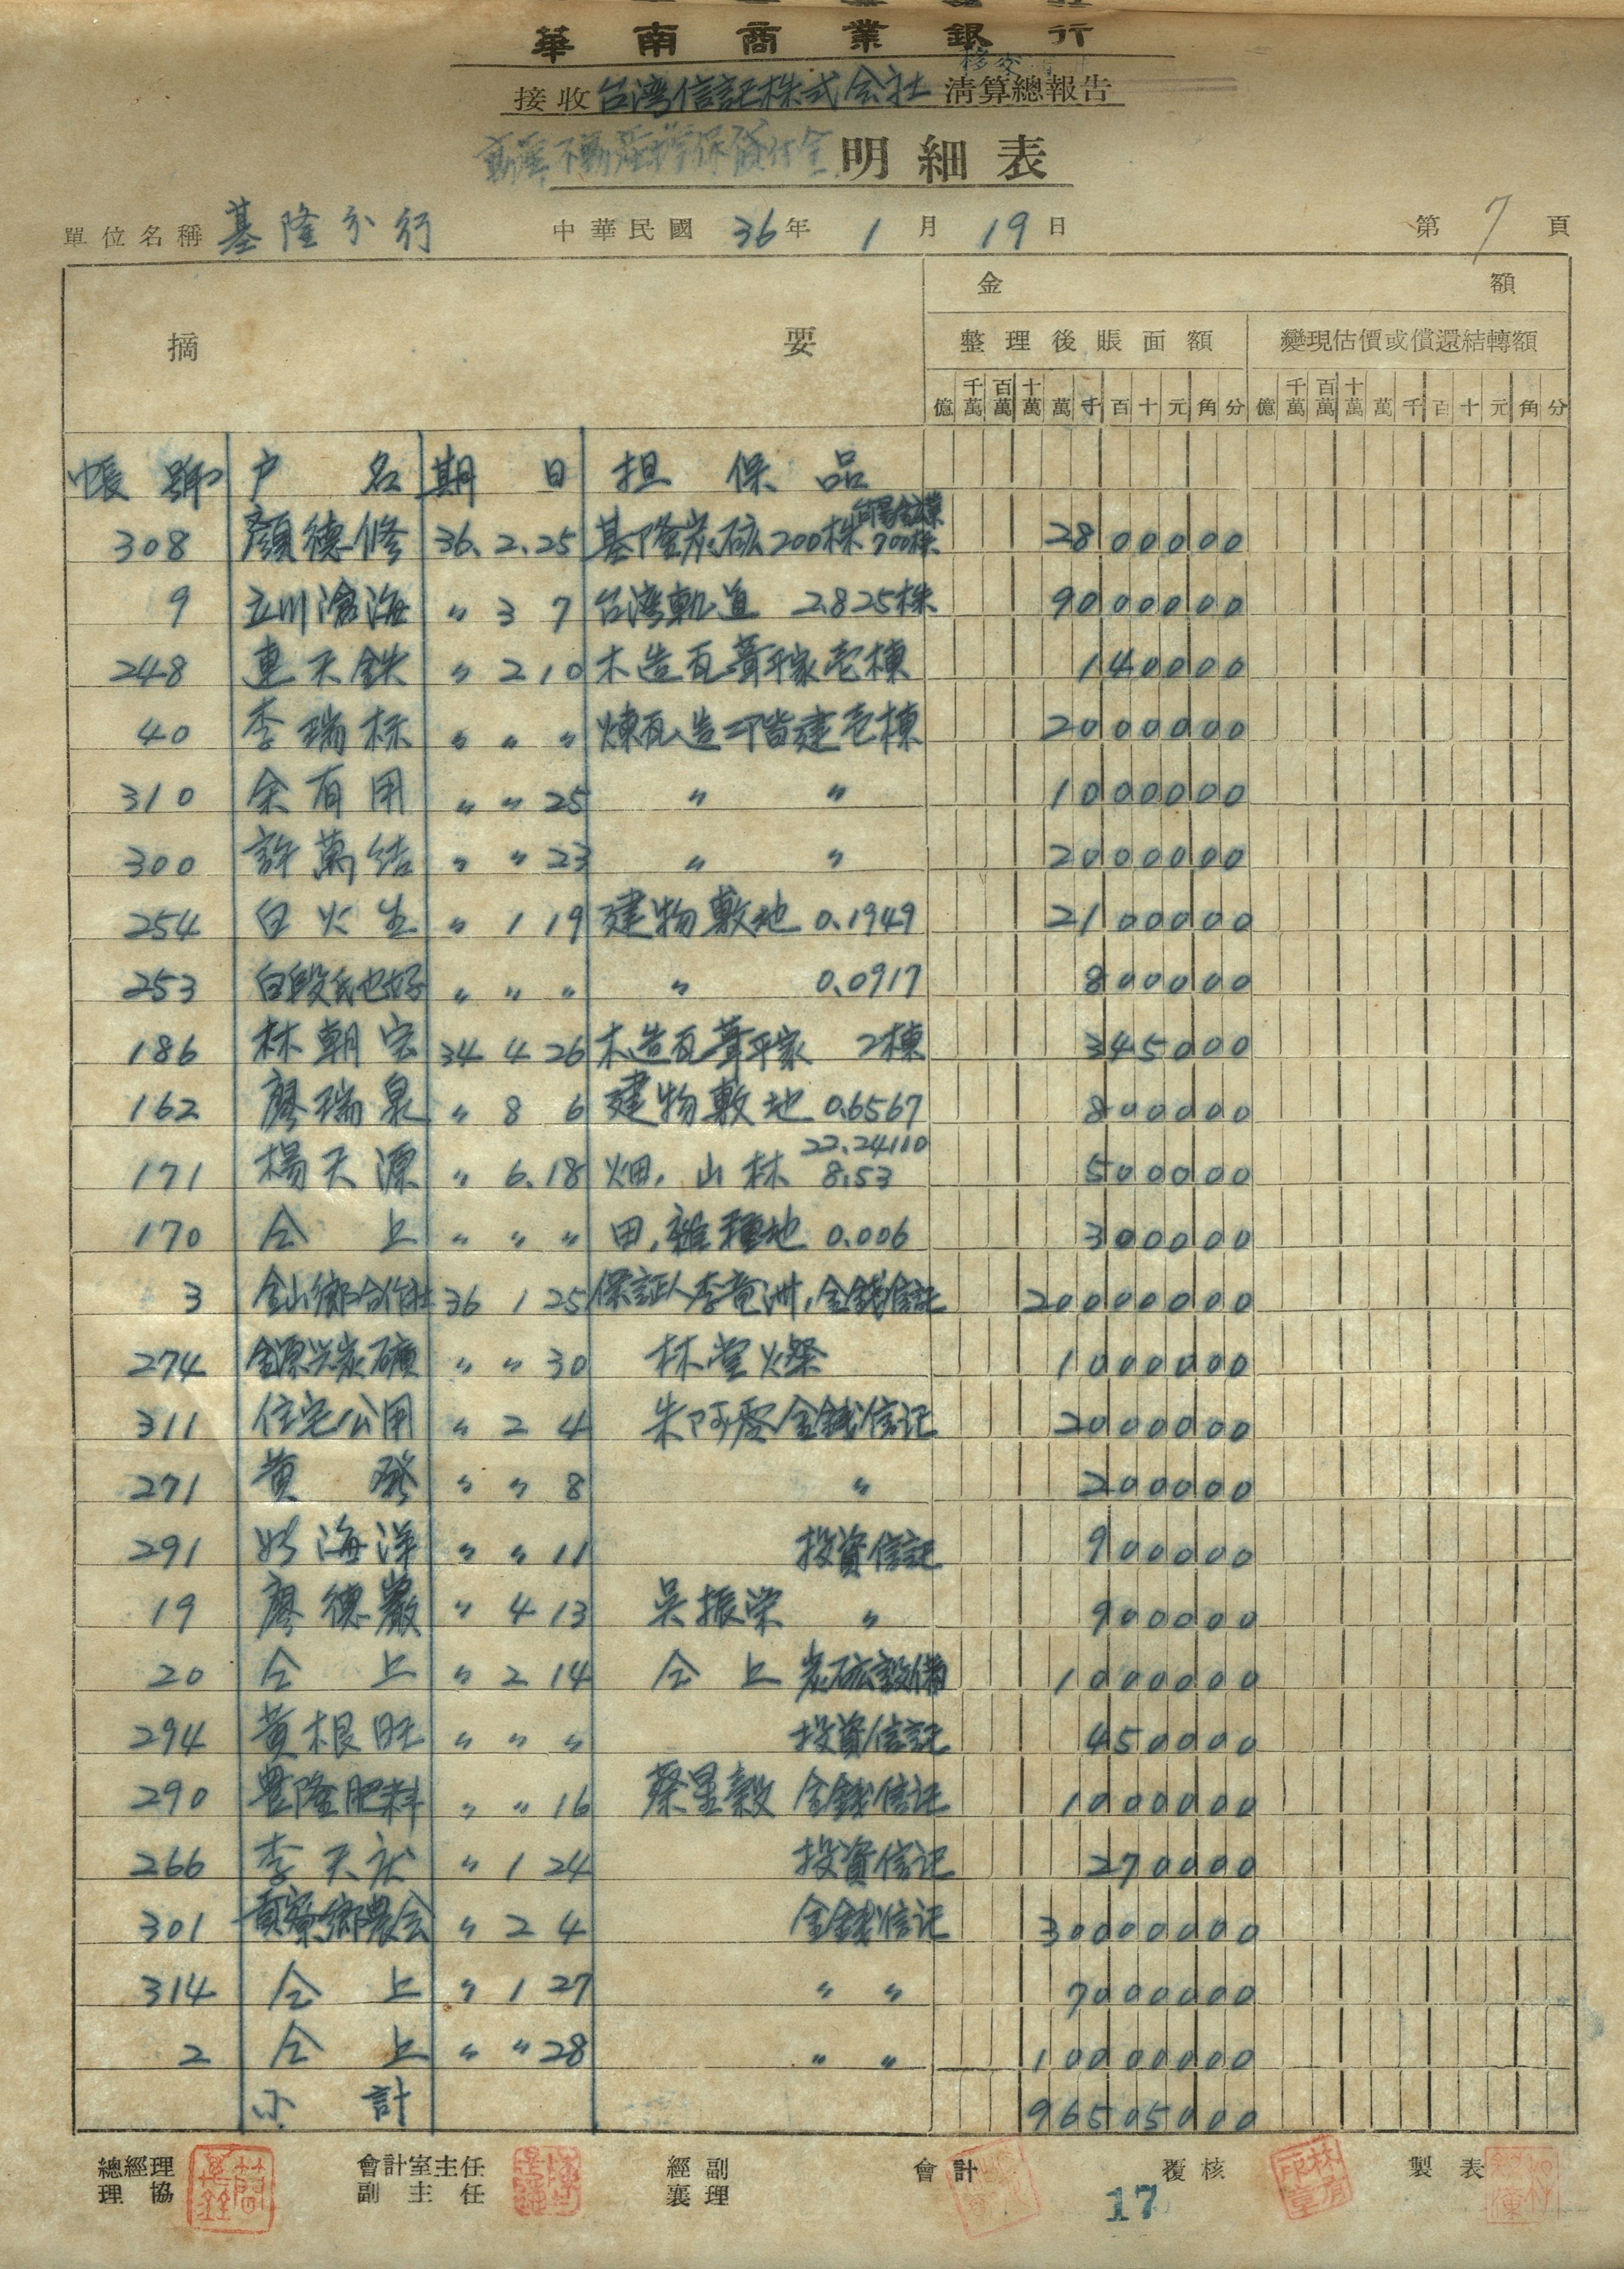 華南商業銀行
移交
接收台湾信託株式会社清算總報告
動產不動產担保貸付金明細表
單位名稱 基隆分行 中華民國 36年 1月 19日 第 7 頁
摘要 金額
整理後賬面額 變現估價或償還結轉額
億 千萬 百萬 十萬 萬 千 百 十 元 角 分 億 千萬 百萬 十萬 萬 千 百 十 元 角 分
帳號 户名 期日 担保品
308 顏德修 36.2.25 基隆炭砿200株 台陽金鉱業700株 2800000
9 立川滄海 〃 3 7 台湾軌道 2.825株 9000000
248 連天鉄 〃 2 10 木造瓦葺平家壱棟 140000
40 李瑞标 〃 〃 〃 煉瓦造二階建壱棟 2000000
310 余有用 〃 〃 25 〃 〃 1000000
300 許萬結 〃 〃 23 〃 〃 2000000
254 白火生 〃 1 19 建物敷地 0.1949 2100000
253 白段氏也好 〃 〃 〃 〃 0.0917 800000
186 林朝宗 34 4 26 木造瓦葺平家 2棟 345000
162 廖瑞泉 〃 8 6 建物敷地 0.6567 800000
171 楊天源 〃 6.18 畑,山林 22.24110 8.53 500000
170 仝上 〃 〃 〃 田,雜種地 0.006 300000
3 金山鄉合作社 36 1 25 保証人李竜洲,金錢信託 20000000
274 金源兴炭礦 〃 〃 30 林堂燦 1000000
311 住宅公用 〃 2 4 朱阿房 金錢信记 2000000
271 黄發 〃 〃 8 〃 200000
291 海洋 〃 〃 11 投資信託 900000
19 廖德巖 〃 4 13 吳振栄 〃 900000
20 仝上 〃 2 14 仝上 炭砿設備 1000000
294 黄根旺 〃 〃 〃 投資信託 450000
290 豊隆肥料 〃 〃 16 蔡星穀 金錢信记 1000000
266 李天 〃 1 24 投資信记 270000
301 貢寮鄉農会 〃 2 4 金錢信记 30000000
314 仝上 〃 1 27 〃 〃 7000000
2 仝上 〃 〃 28 〃 〃 10000000
小計 96505000
總經理 會計室主任 經副 會計 覆核 製表
理協 副主任 襄理
17